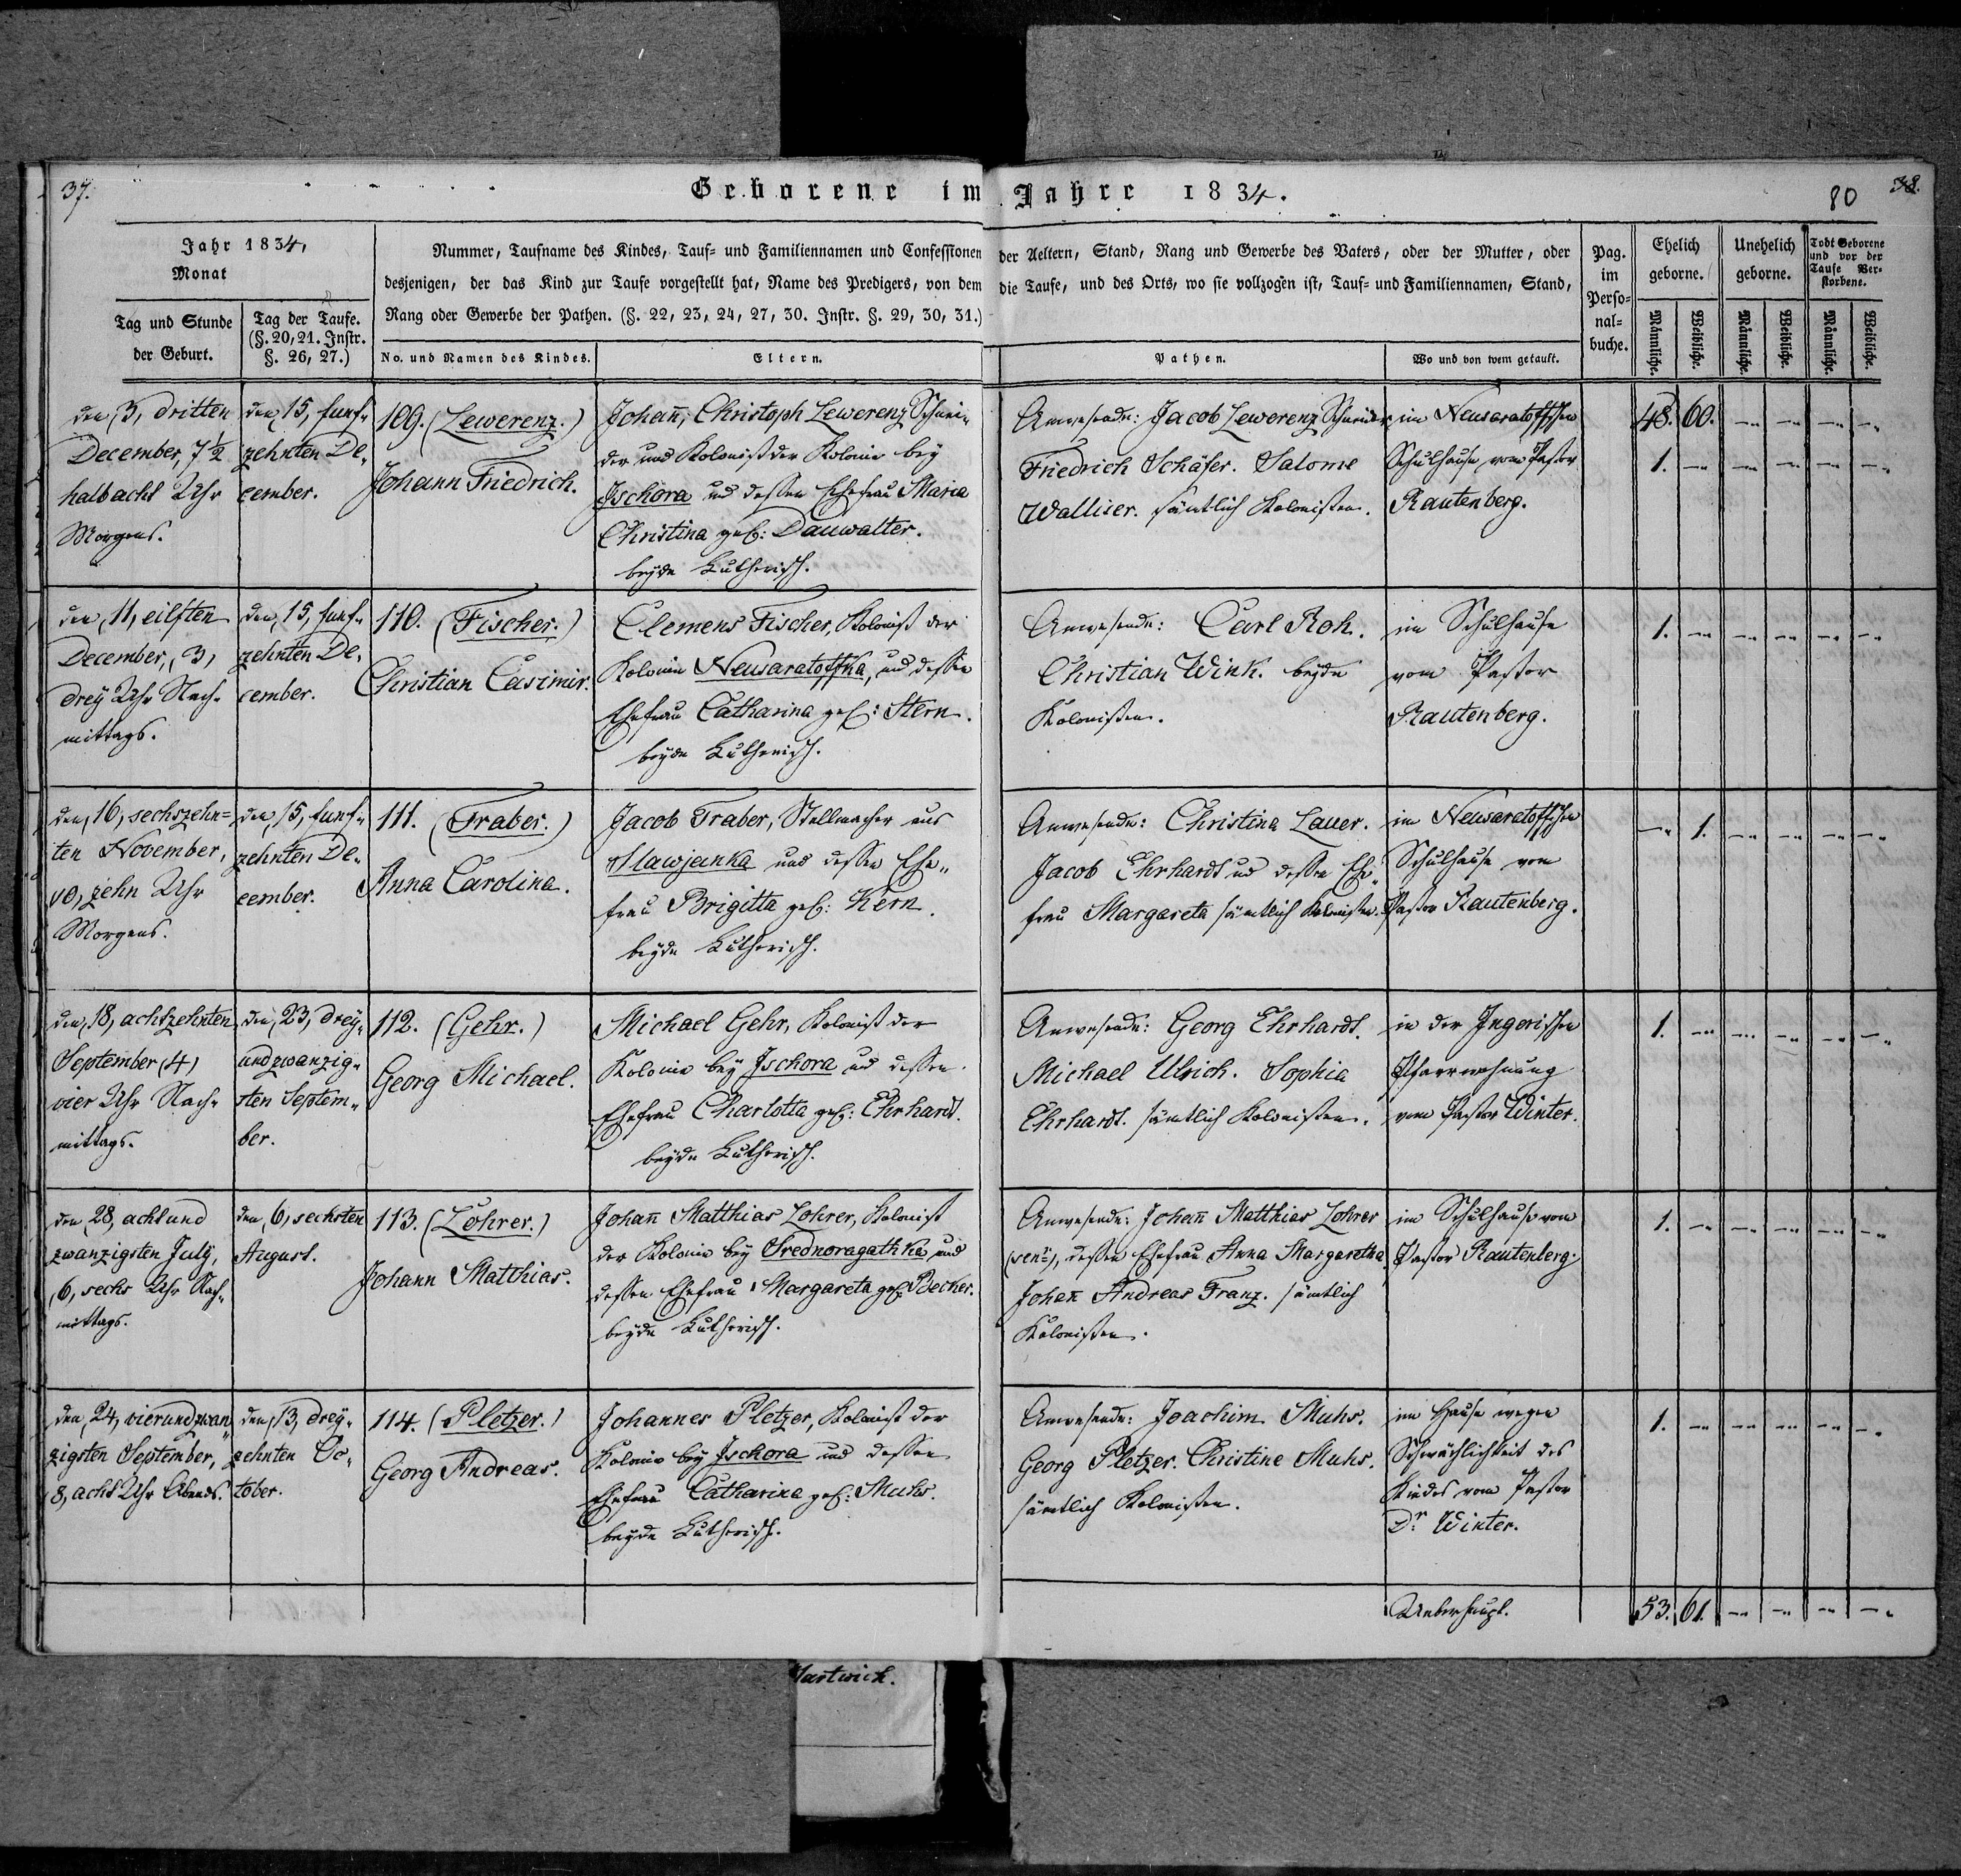 37.
Geborene im Jahre 1834.
80
38.
Jahr 1834,
Monat
Tag und Stunde
der Geburt.
Tag der Taufe.
(§. 20, 21. Instr.
§. 26, 27.)
Nummer, Taufname des Kindes, Tauf- und Familiennamen und Confessionen der Aeltern, Stand, Rang und Gewerbe des Vaters, oder der Mutter, oder
desjenigen, der das Kind zur Taufe vorgestellt hat, Name des Predigers, von dem die Taufe, und des Orts, wo sie vollzogen ist, Tauf- und Familiennamen, Stand,
Rang oder Gewerbe der Pathen. (§. 22, 23, 24, 27, 30. Instr. §. 29, 30, 31.)
No. und Namen des Kindes.
Eltern.
Pathen.
Wo und von wem getauft.
Pag.
im
Perso-
nal-
buche.
Ehelich
geborne.
Unehelich
geborne.
Todt Geborene
und vor der
Taufe Ver-
storbene.
Männliche.
Weibliche.
Männliche.
Weibliche.
Männliche.
Weibliche.
den 3, dritten
December, 7½
halb acht Uhr
Morgens.
den 15, funf-
zehnten De-
cember.
109. (Lewerenz.)
Johann Friedrich.
Johañ, Christoph Lewerenz Schnei-
der und Kolonist der Kolonie bey
Ischora und dessen Ehefrau Maria
Christina geb: Dauwalter.
beyde Lutherisch.
Anwesende: Jacob Lewerenz Schneider
Friedrich Schäfer. Salome
Walliser. sämtlich Kolonisten.
im Neusaratoffschen
Schulhause vom Pastor
Rautenberg.
48. 60. - - - -
1. - - - - -
den 11, eilften
December, 3,
drey Uhr Nach-
mittags.
den 15, funf-
zehnten De-
cember.
110. (Fischer.)
Christian Casimir.
Clemens Fischer, Kolonist der
Kolonie Neusaratoffka, und dessen
Ehefrau Catharina geb: Stern.
beyde Lutherisch.
Anwesende: Carl Roh.
Christian Wink. beyde
Kolonisten.
im Schulhause
vom Pastor
Rautenberg.
1. - - - - -
den 16, sechszehn=
ten November,
10, zehn Uhr
Morgens.
den 15, funf-
zehnten De-
cember.
111. (Traber.)
Anna Carolina.
Jacob Traber, Stellmacher aus
Slawjanka und dessen Ehe-
frau Brigitta geb: Kern.
beyde Lutherisch.
Anwesende: Christina Lauer.
Jacob Ehrhardt und dessen Ehe-
frau Margareta sämtlich Kolonisten.
im Neusaratoffschen
Schulhause vom
Pastor Rautenberg.
- 1. - - - -
den 18, achtzehnten
September (4)
vier Uhr Nach-
mittags.
den 23, drey-
undzwanzig-
sten Septem-
ber.
112. (Gehr.)
Georg Michael.
Michael Gehr, Kolonist der
Kolonie bey Ischora und dessen
Ehefrau Charlotta geb: Ehrhardt.
beyde Lutherisch.
Anwesende: Georg Ehrhardt.
Michael Ulrich. Sophia
Ehrhardt. sämtlich Kolonisten.
in der Ingerischen
Pfarrwohnung
vom Pastor Winter.
1. - - - - -
den 28, acht und
zwanzigsten July,
6, sechs Uhr Nach-
mittags.
den 6, sechsten
August.
113. (Lohrer.)
Johann Matthias.
Johañ Matthias Lohrer, Kolonist
der Kolonie bey Srednoragathka und
dessen Ehefrau Margareta geb: Becker.
beyde Lutherisch.
Anwesende: Johañ Matthias Lohrer
(senr), dessen Ehefrau Anna Margaretha
Johañ Andreas Franz. sämtlich
Kolonisten.
im Schulhause vom
Pastor Rautenberg.
1. - - - - -
den 24, vierundzwan-
zigsten September,
8, acht Uhr Abends.
den 13, drey-
zehnten Oc-
tober.
114. (Pletzer.)
Georg Andreas.
Johannes Pletzer, Kolonist der
Kolonie bey Ischora und dessen
Ehefrau Catharina geb: Muhs.
beyde Lutherisch.
Anwesende: Joachim Muhs.
Georg Pletzer. Christine Muhs.
sämtlich Kolonisten.
im Hause wegen
Schwächlichkeit des
Kindes vom Pastor
Dr Winter.
1. - - - - -
Ueberhaupt.
53. 61. - - - -
Hartwich.